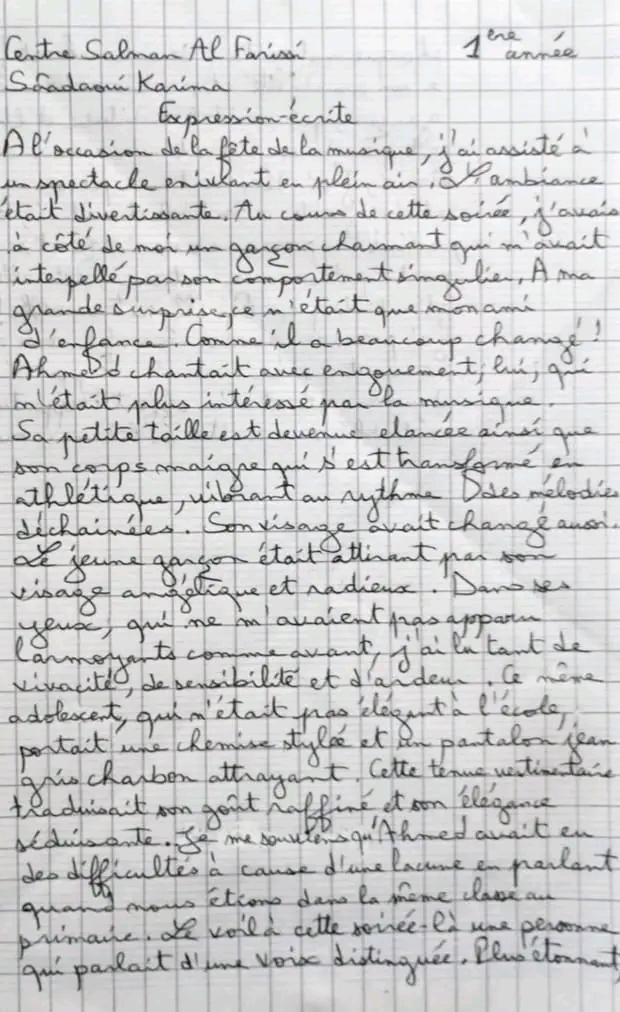 Centre Salman Al Farissi 1ère année
Saadaoui Karima
Expression-écrite
A l'occasion de la fête de la musique, j'ai assisté à
un spectacle enivulant en plein air. L'ambiance
était divertissante. Au cours de cette soirée, j'avais
à côté de moi un garçon charmant qui m'avait
interpellé par son comportement singulier. A ma
grande surprise, ce n'était que mon ami
d'enfance. Comme il a beaucoup changé !
Ahmed chantait avec engouement, lui, qui
n'était plus intéressé par la musique.
Sa petite taille est devenue elancée ainsi que
son corps maigre qui s'est transformé en
athlétique, vibrant au rythme des mélodies
déchainées. Son visage avait changé aussi.
Le jeune garçon était attirant par son
visage angélique et radieux. Dans ses
yeux, qui ne m'avaient pas apparu
larmoyants comme avant, j'ai lu tant de
vivacité, de sensibilité et d'ardeur. Ce même
adolescent, qui n'était pas élégant à l'école,
portait une chemise stylée et un pantalon jean
gris charbon attrayant. Cette tenue vestimentaire
traduisait son goût raffiné et son élégance
séduisante. Je me souviens qu'Ahmed avait eu
des difficultés à cause d'une lacune en parlant
quand nous étions dans la même classe au
primaire. Le voilà cette soirée-là une personne
qui parlait d'une voix distinguée. Plus étonnant,